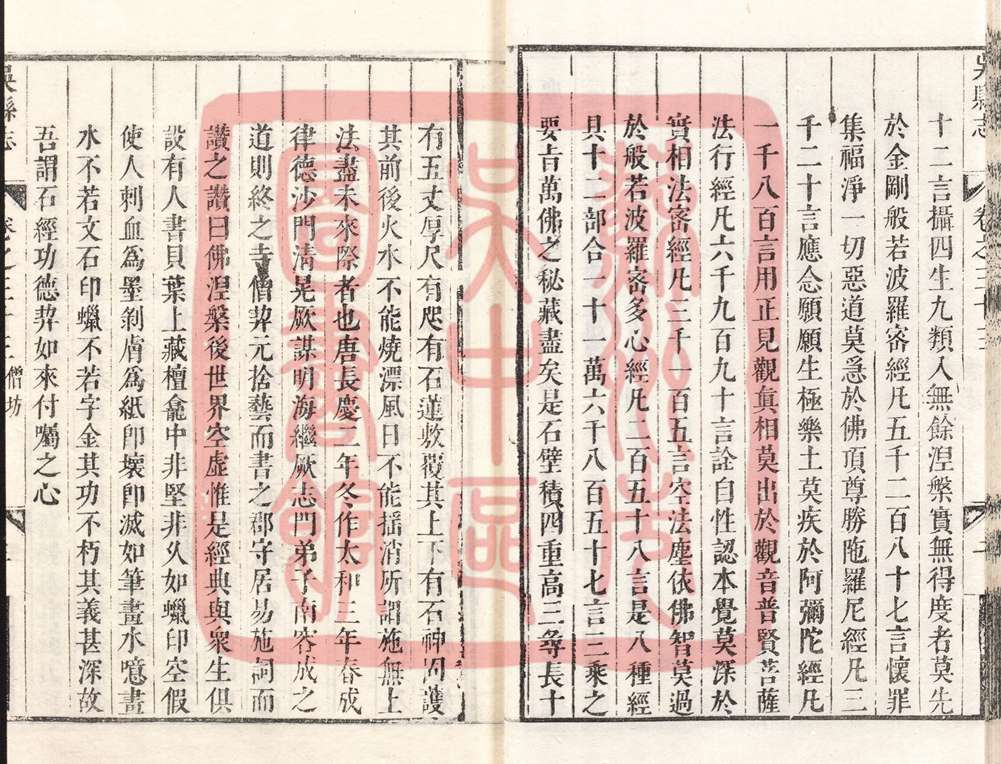 吳縣志
卷之三十三
十二言攝四生九類入無餘涅槃實無得度者莫先
於金剛般若波羅密經凡五千二百八十七言懷罪
集福淨一切惡道莫急於佛頂尊勝陁羅尼經凡三
千二十言應念願願生極樂土莫疾於阿彌陀經凡
一千八百言用正見觀眞相莫出於觀音普賢菩薩
法行經凡六千九百九十言詮自性認本覺莫深於
實相法密經凡三千一百五言空法塵依佛智莫過
於般若波羅密多心經凡二百五十八言是八種經
具十二部合一十一萬六千八百五十七言三乘之
要㫖萬佛之秘藏盡矣是石壁積四重高三尋長十
有五丈厚尺有咫有石蓮敷覆其上下有石神固護
其前後火水不能燒漂風日不能揺消所謂施無上
法盡未來際者也唐長慶二年冬作太和三年春成
律德沙門淸晃厥謀明海繼厥志門弟子南容成之
道則終之寺僧契元捨藝而書之郡守居易施詞而
讚之讚曰佛涅槃後世界空虛惟是經典與衆生俱
設有人書貝葉上藏檀龕中非堅非久如蠟印空假
使人刺血爲墨剝膚爲紙卽壞卽滅如筆畫水噫畫
水不若文石印蠟不若字金其功不朽其義甚深故
吾謂石經功德契如來付囑之心
吳縣志
卷之三十三
僧坊
蘇州市
吳中區
圖書館